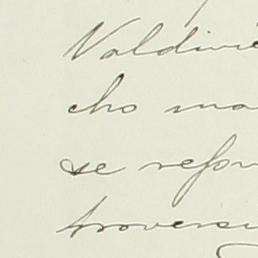 Valdivie
cho ma
se refor
troversi